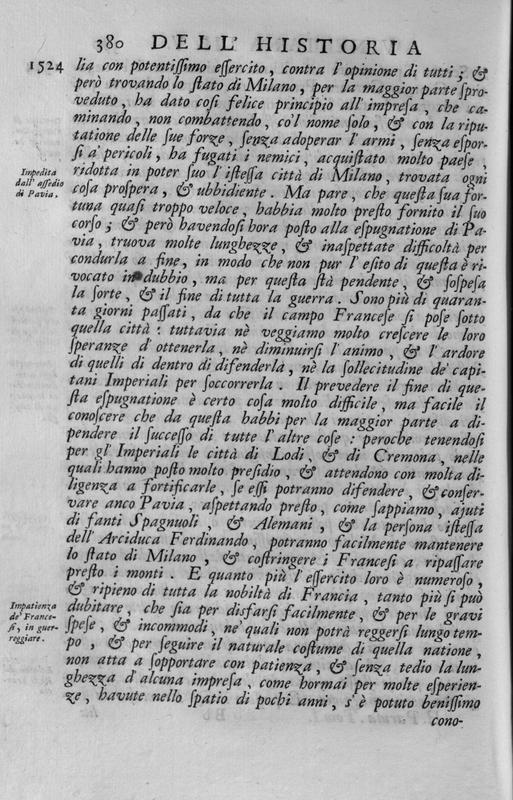 380 DELL' HISTORIA
1524 lia con potentiſſimo eſſercito, contra l'opinione di tutti; &
però trovando lo ſtato di Milano, per la maggior parte ſpro-
veduto, ha dato coſi felice principio all'impreſa, che ca-
minando, non combattendo, co'l nome ſolo, & con la ripu-
tatione delle ſue forze, ſenza adoperar l'armi, ſenza eſpor-
ſi a' pericoli, ha fugati i nemici, acquiſtato molto paeſe,
Impedita
dall'aſſedio
di Pavia.
ridotta in poter ſuo l'iſteſſa città di Milano, trovata ogni
coſa proſpera, & ubbidiente. Ma pare, che queſta ſua for-
tuna quaſi troppo veloce, habbia molto preſto fornito il ſuo
corſo; & però havendoſi hora poſto alla eſpugnatione di Pa-
via, truova molte lunghezze, & inaſpettate difficoltà per
condurla a fine, in modo che non pur l'eſito di queſta è ri-
vocato in dubbio, ma per queſta ſtà pendente, & ſoſpeſa
la ſorte, & il fine di tutta la guerra. Sono più di quaran-
ta giorni paſſati, da che il campo Franceſe ſi poſe ſotto
quella città: tuttavia nè veggiamo molto creſcere le loro
ſperanze d'ottenerla, nè diminuirſi l'animo, & l'ardore
di quelli di dentro di difenderla, nè la ſollecitudine de' capi-
tani Imperiali per ſoccorrerla. Il prevedere il fine di que-
ſta eſpugnatione è certo coſa molto difficile, ma facile il
conoſcere che da queſta habbi per la maggior parte a di-
pendere il ſucceſſo di tutte l'altre coſe: peroche tenendoſi
per gl'Imperiali le città di Lodi, & di Cremona, nelle
quali hanno poſto molto preſidio, & attendono con molta di-
ligenza a fortificarle, ſe eſſi potranno difendere, & conſer-
vare anco Pavia, aſpettando preſto, come ſappiamo, ajuti
di fanti Spagnuoli, & Alemani, & la perſona iſteſſa
dell'Arciduca Ferdinando, potranno facilmente mantenere
lo ſtato di Milano, & coſtringere i Franceſi a ripaſſare
preſto i monti. E quanto più l'eſſercito loro è numeroſo,
& ripieno di tutta la nobiltà di Francia, tanto più ſi può
Impatienza
de' France-
ſi, in guer-
reggiare.
dubitare, che ſia per disfarſi facilmente, & per le gravi
ſpeſe, & incommodi, ne' quali non potrà reggerſi lungo tem-
po, & per ſeguire il naturale coſtume di quella natione,
non atta a ſopportare con patienza, & ſenza tedio la lun-
ghezza d'alcuna impreſa, come hormai per molte eſperien-
ze, havute nello ſpatio di pochi anni, s'è potuto beniſſimo
cono-